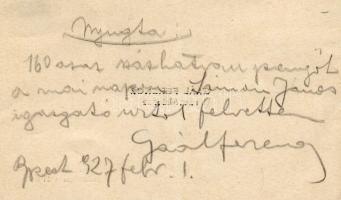 Nyugta.
160 azaz százhatvan pengőt
a mai napon Simon János
igazgató úrtól felvettem
Gaál Ferenc
Bpest 927 febr. 1.